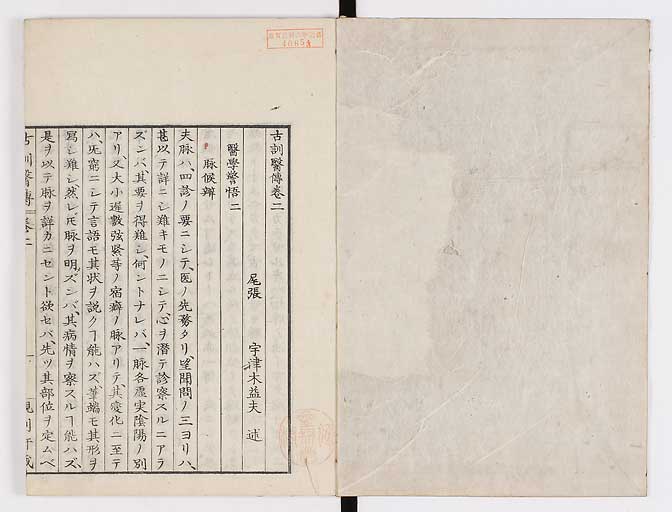 古訓醫傳巻二
尾張 宇津木益夫 述
醫學警悟二
脉候辨
夫脉ハ、四診ノ要ニシテ、医ノ先務タリ、望聞問ノ三ヨリハ、
甚以テ詳ニシ難キモノニシテ、心ヲ潜テ診察スルニアラ
ズンバ、其要ヲ得難シ、何ントナレバ、一脉各虚実陰陽ノ別
アリ、又大小遅數弦緊等ノ宿癖ノ脉アリテ、其変化ニ至テ
ハ、旡窮ニシテ言語モ其状ヲ説クヿ能ハズ、筆端モ其形ヲ
寫シ難シ、然レ𪜈脉ヲ明ズンバ、其病情ヲ察スルヿ能ハズ、
是ヲ以テ脉ヲ詳カニセント欲セバ、先ツ其部位ヲ定ムベ
古訓醫傳 巻二 一